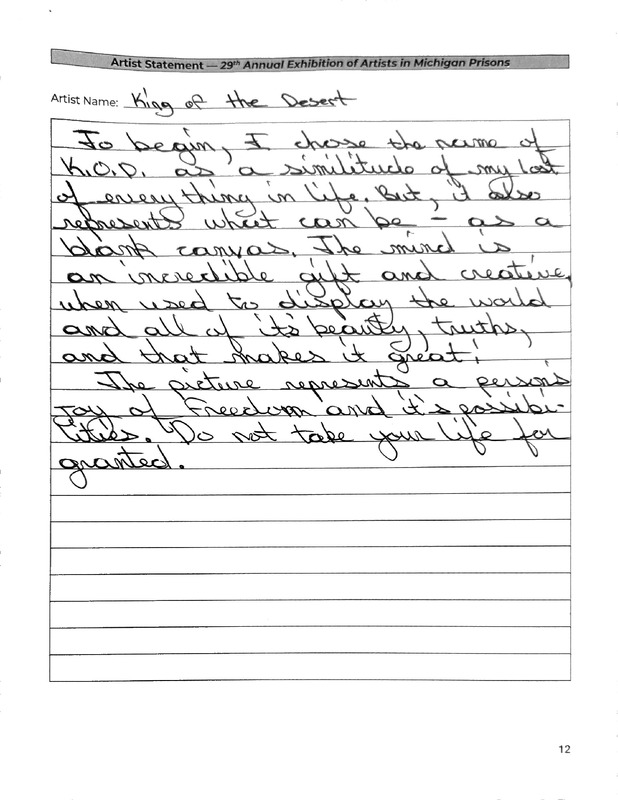 Artist Statement — 29th Annual Exhibition of Artists in Michigan Prisons
Artist Name: King of the Desert
To begin, I chose the name of
K.O.D. as a similitude of my lost
of everything in life. But, it also
represents what can be – as a
blank canvas. The mind is
an incredible gift and creative,
when used to display the world
and all of it's beauty, truths,
and that makes it great!
The picture represents a person's
joy of Freedom and it's possibi-
lities. Do not take your life for
granted.
12